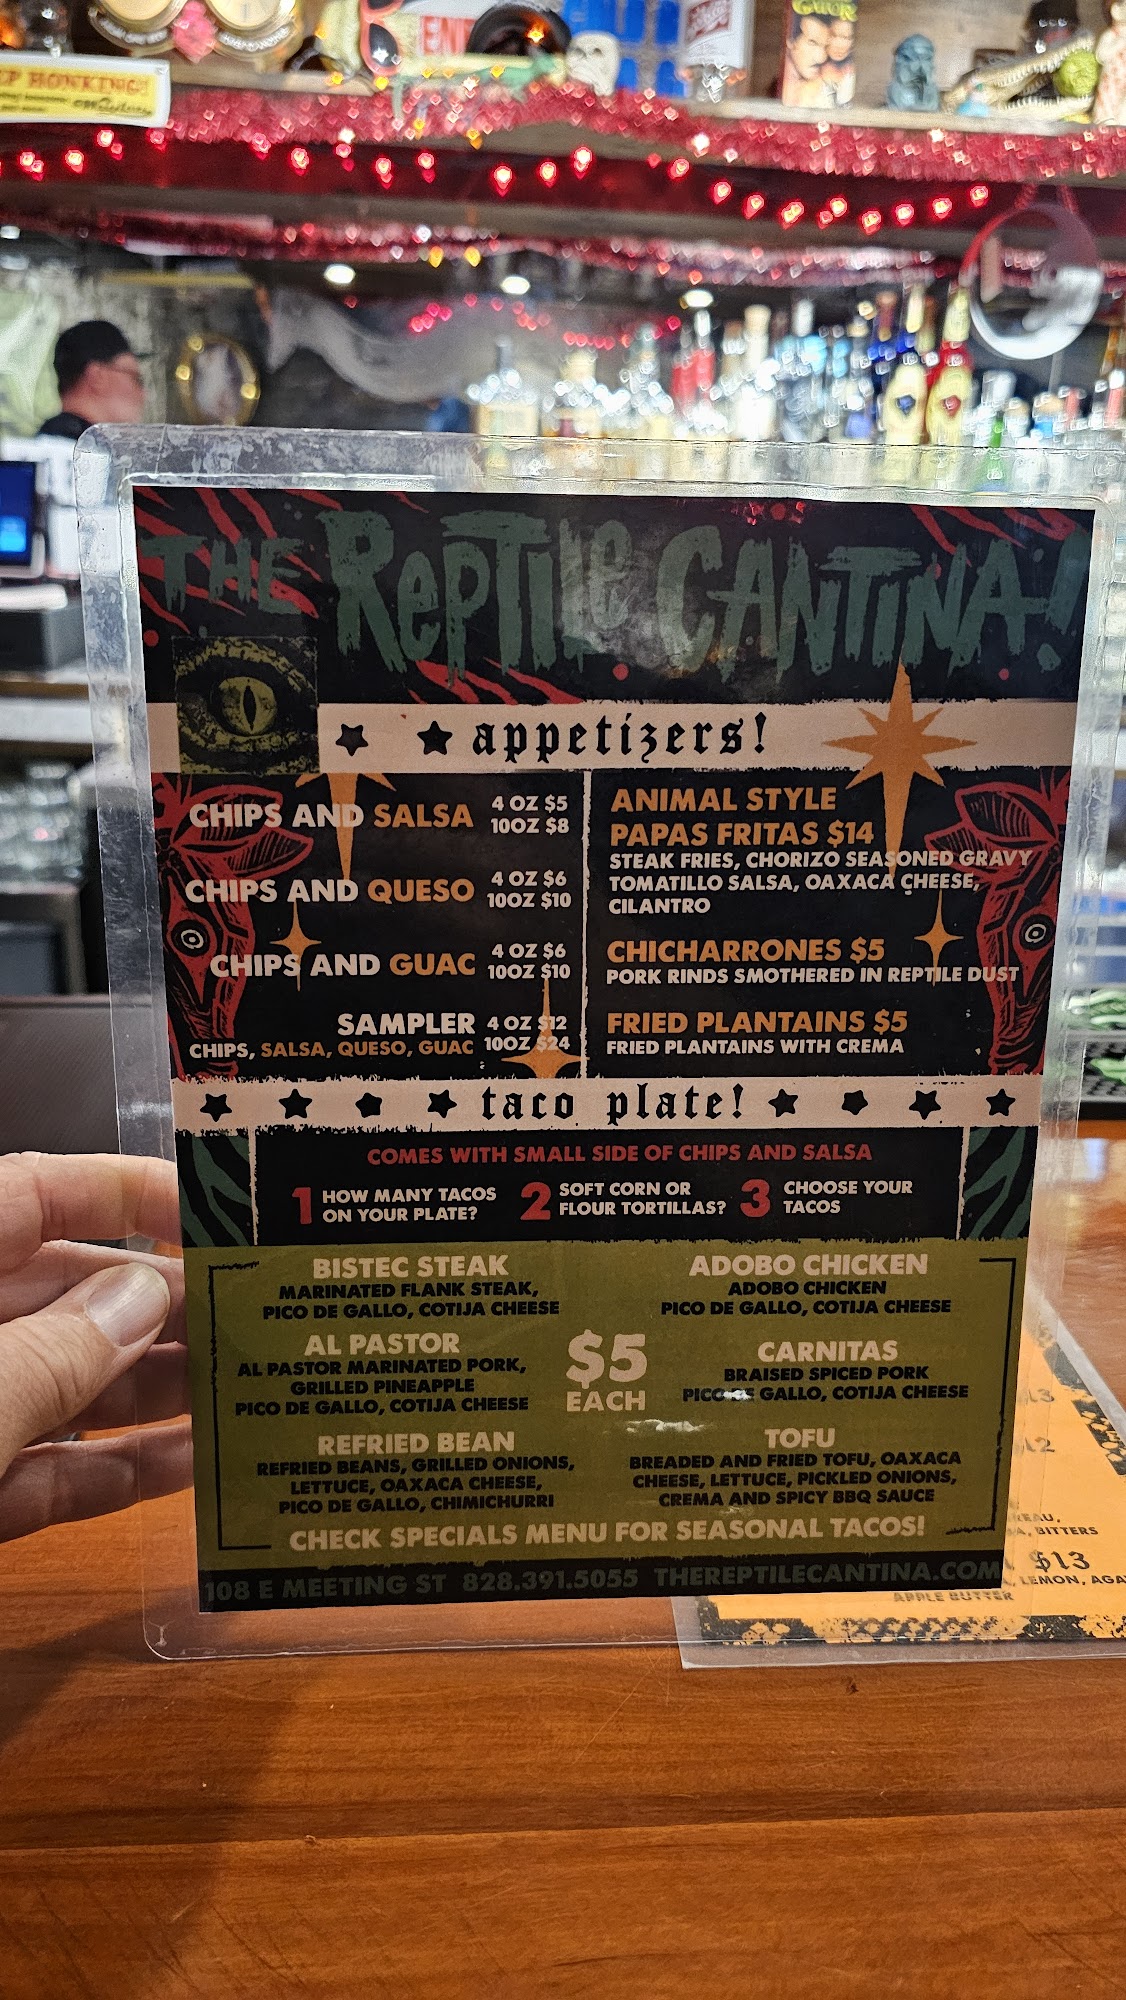 HONKING!
THE REPTILE CANTINA!
appetizers!
CHIPS AND SALSA 4 OZ $5
10OZ $8
CHIPS AND QUESO 4 OZ $6
10OZ $10
CHIPS AND GUAC 4 OZ $6
10OZ $10
SAMPLER 4 OZ $12
CHIPS, SALSA, QUESO, GUAC 10OZ $24
ANIMAL STYLE
PAPAS FRITAS $14
STEAK FRIES, CHORIZO SEASONED GRAVY
TOMATILLO SALSA, OAXACA CHEESE,
CILANTRO
CHICHARRONES $5
PORK RINDS SMOTHERED IN REPTILE DUST
FRIED PLANTAINS $5
FRIED PLANTAINS WITH CREMA
taco plate!
COMES WITH SMALL SIDE OF CHIPS AND SALSA
1 HOW MANY TACOS
ON YOUR PLATE?
2 SOFT CORN OR
FLOUR TORTILLAS?
3 CHOOSE YOUR
TACOS
BISTEC STEAK
MARINATED FLANK STEAK,
PICO DE GALLO, COTIJA CHEESE
AL PASTOR
AL PASTOR MARINATED PORK,
GRILLED PINEAPPLE
PICO DE GALLO, COTIJA CHEESE
REFRIED BEAN
REFRIED BEANS, GRILLED ONIONS,
LETTUCE, OAXACA CHEESE,
PICO DE GALLO, CHIMICHURRI
$5
EACH
ADOBO CHICKEN
ADOBO CHICKEN
PICO DE GALLO, COTIJA CHEESE
CARNITAS
BRAISED SPICED PORK
PICO DE GALLO, COTIJA CHEESE
TOFU
BREADED AND FRIED TOFU, OAXACA
CHEESE, LETTUCE, PICKLED ONIONS,
CREMA AND SPICY BBQ SAUCE
CHECK SPECIALS MENU FOR SEASONAL TACOS!
108 E MEETING ST 828.391.5055 THEREPTILECANTINA.COM
BITTERS
$13
LEMON, AGA
APPLE BUTTER